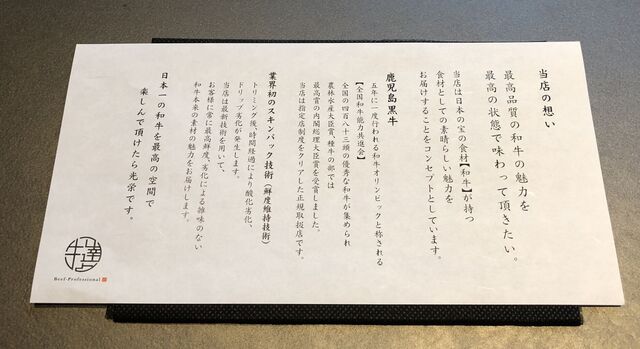 当店の想い
最高品質の和牛の魅力を
最高の状態で味わって頂きたい。
当店は日本の宝の食材【和牛】が持つ
食材としての素晴らしい魅力を
お届けすることをコンセプトとしています。
鹿児島黒牛
五年に一度行われる和牛オリンピックと称される
【全国和牛能力共進会】
全国の四百八十三頭の優秀な和牛が集められ
農林水産大臣賞、種牛の部では
最高賞の内閣総理大臣賞を受賞しました。
当店は指定店制度をクリアした正規取扱店です。
業界初のスキンパック技術（鮮度維持技術）
トリミング後、時間経過により酸化劣化、
ドリップ劣化が発生します。
当店は最新技術を用いて、
お客様に常に最高鮮度、劣化による雑味のない
和牛本来の素材の魅力をお届けします。
日本一の和牛を最高の空間で
楽しんで頂けたら光栄です。
Beef-Professional